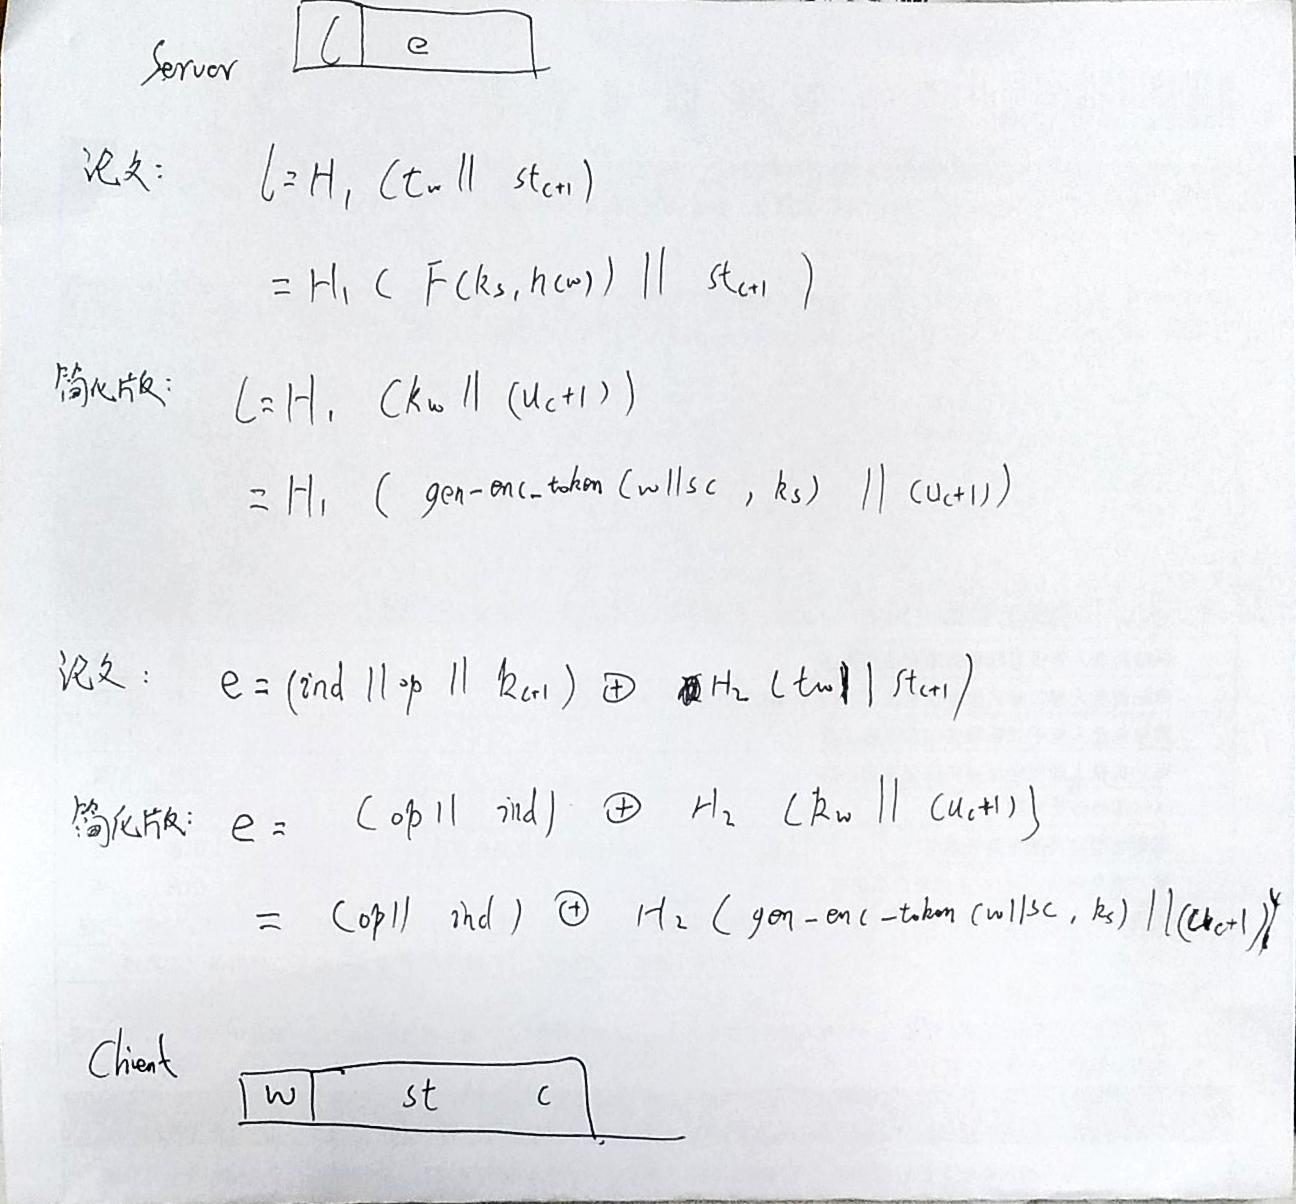 l e
Server
论文: l = H₁ (t_w || st_{c+1})
= H₁ ( F(k_s, h(w)) || st_{c+1} )
简化版: l = H₁ (k_w || (u_c+1))
= H₁ ( gen-enc-token (w||sc , k_s) || (u_c+1))
论文: e = (ind || op || k_{c+1}) ⊕ H₂ (t_w || st_{c+1})
简化版: e = (op || ind) ⊕ H₂ (k_w || (u_c+1))
= (op || ind) ⊕ H₂ ( gen-enc-token (w||sc, k_s) || (u_c+1))
Client
w st c